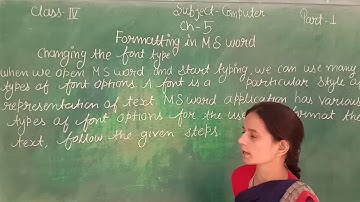 Class-IV Subject-Computer Part-1
Ch-5
Formatting in MS word
Changing the font type
when we open MS word and start typing, we can use many
types of font options. A font is a particular style of
representation of text. MS word application has various
types of font options for the use format the
text, follow the given steps.